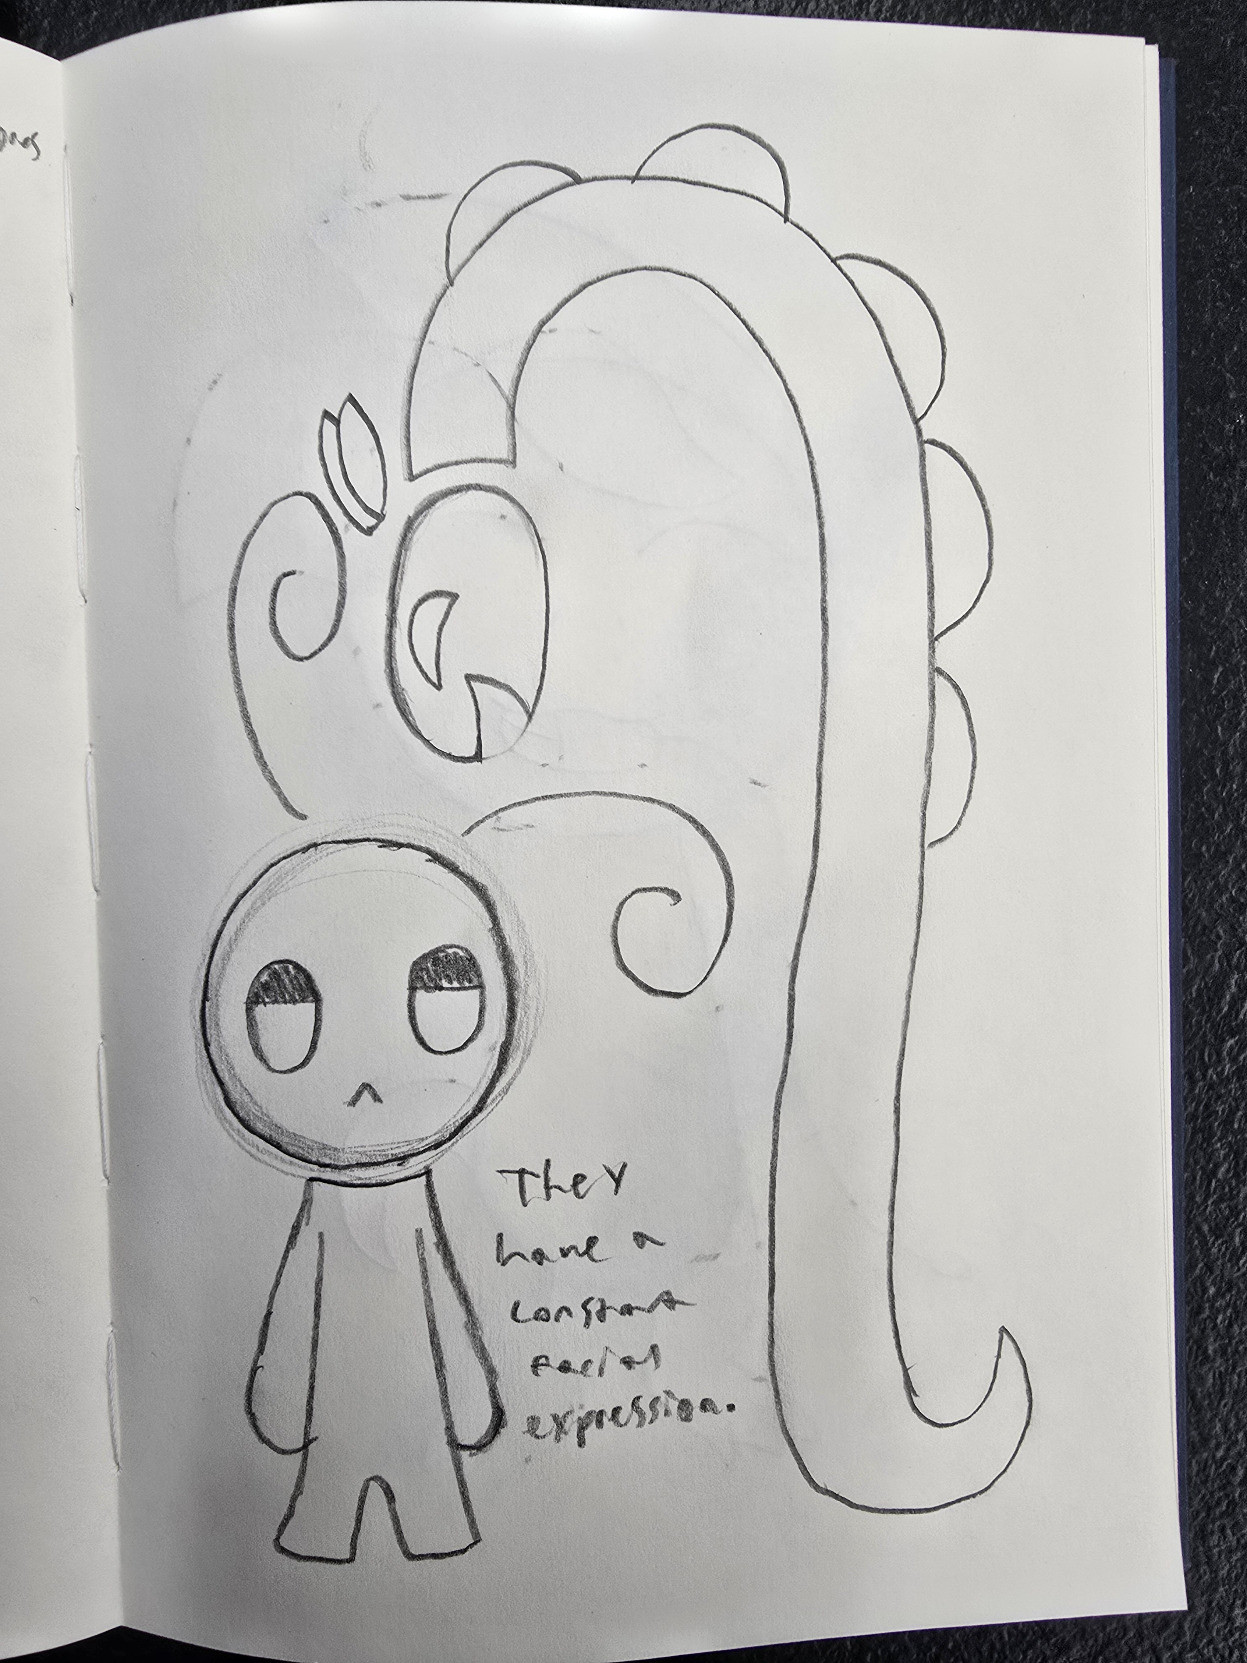 They
have a
constant
facial
expression.